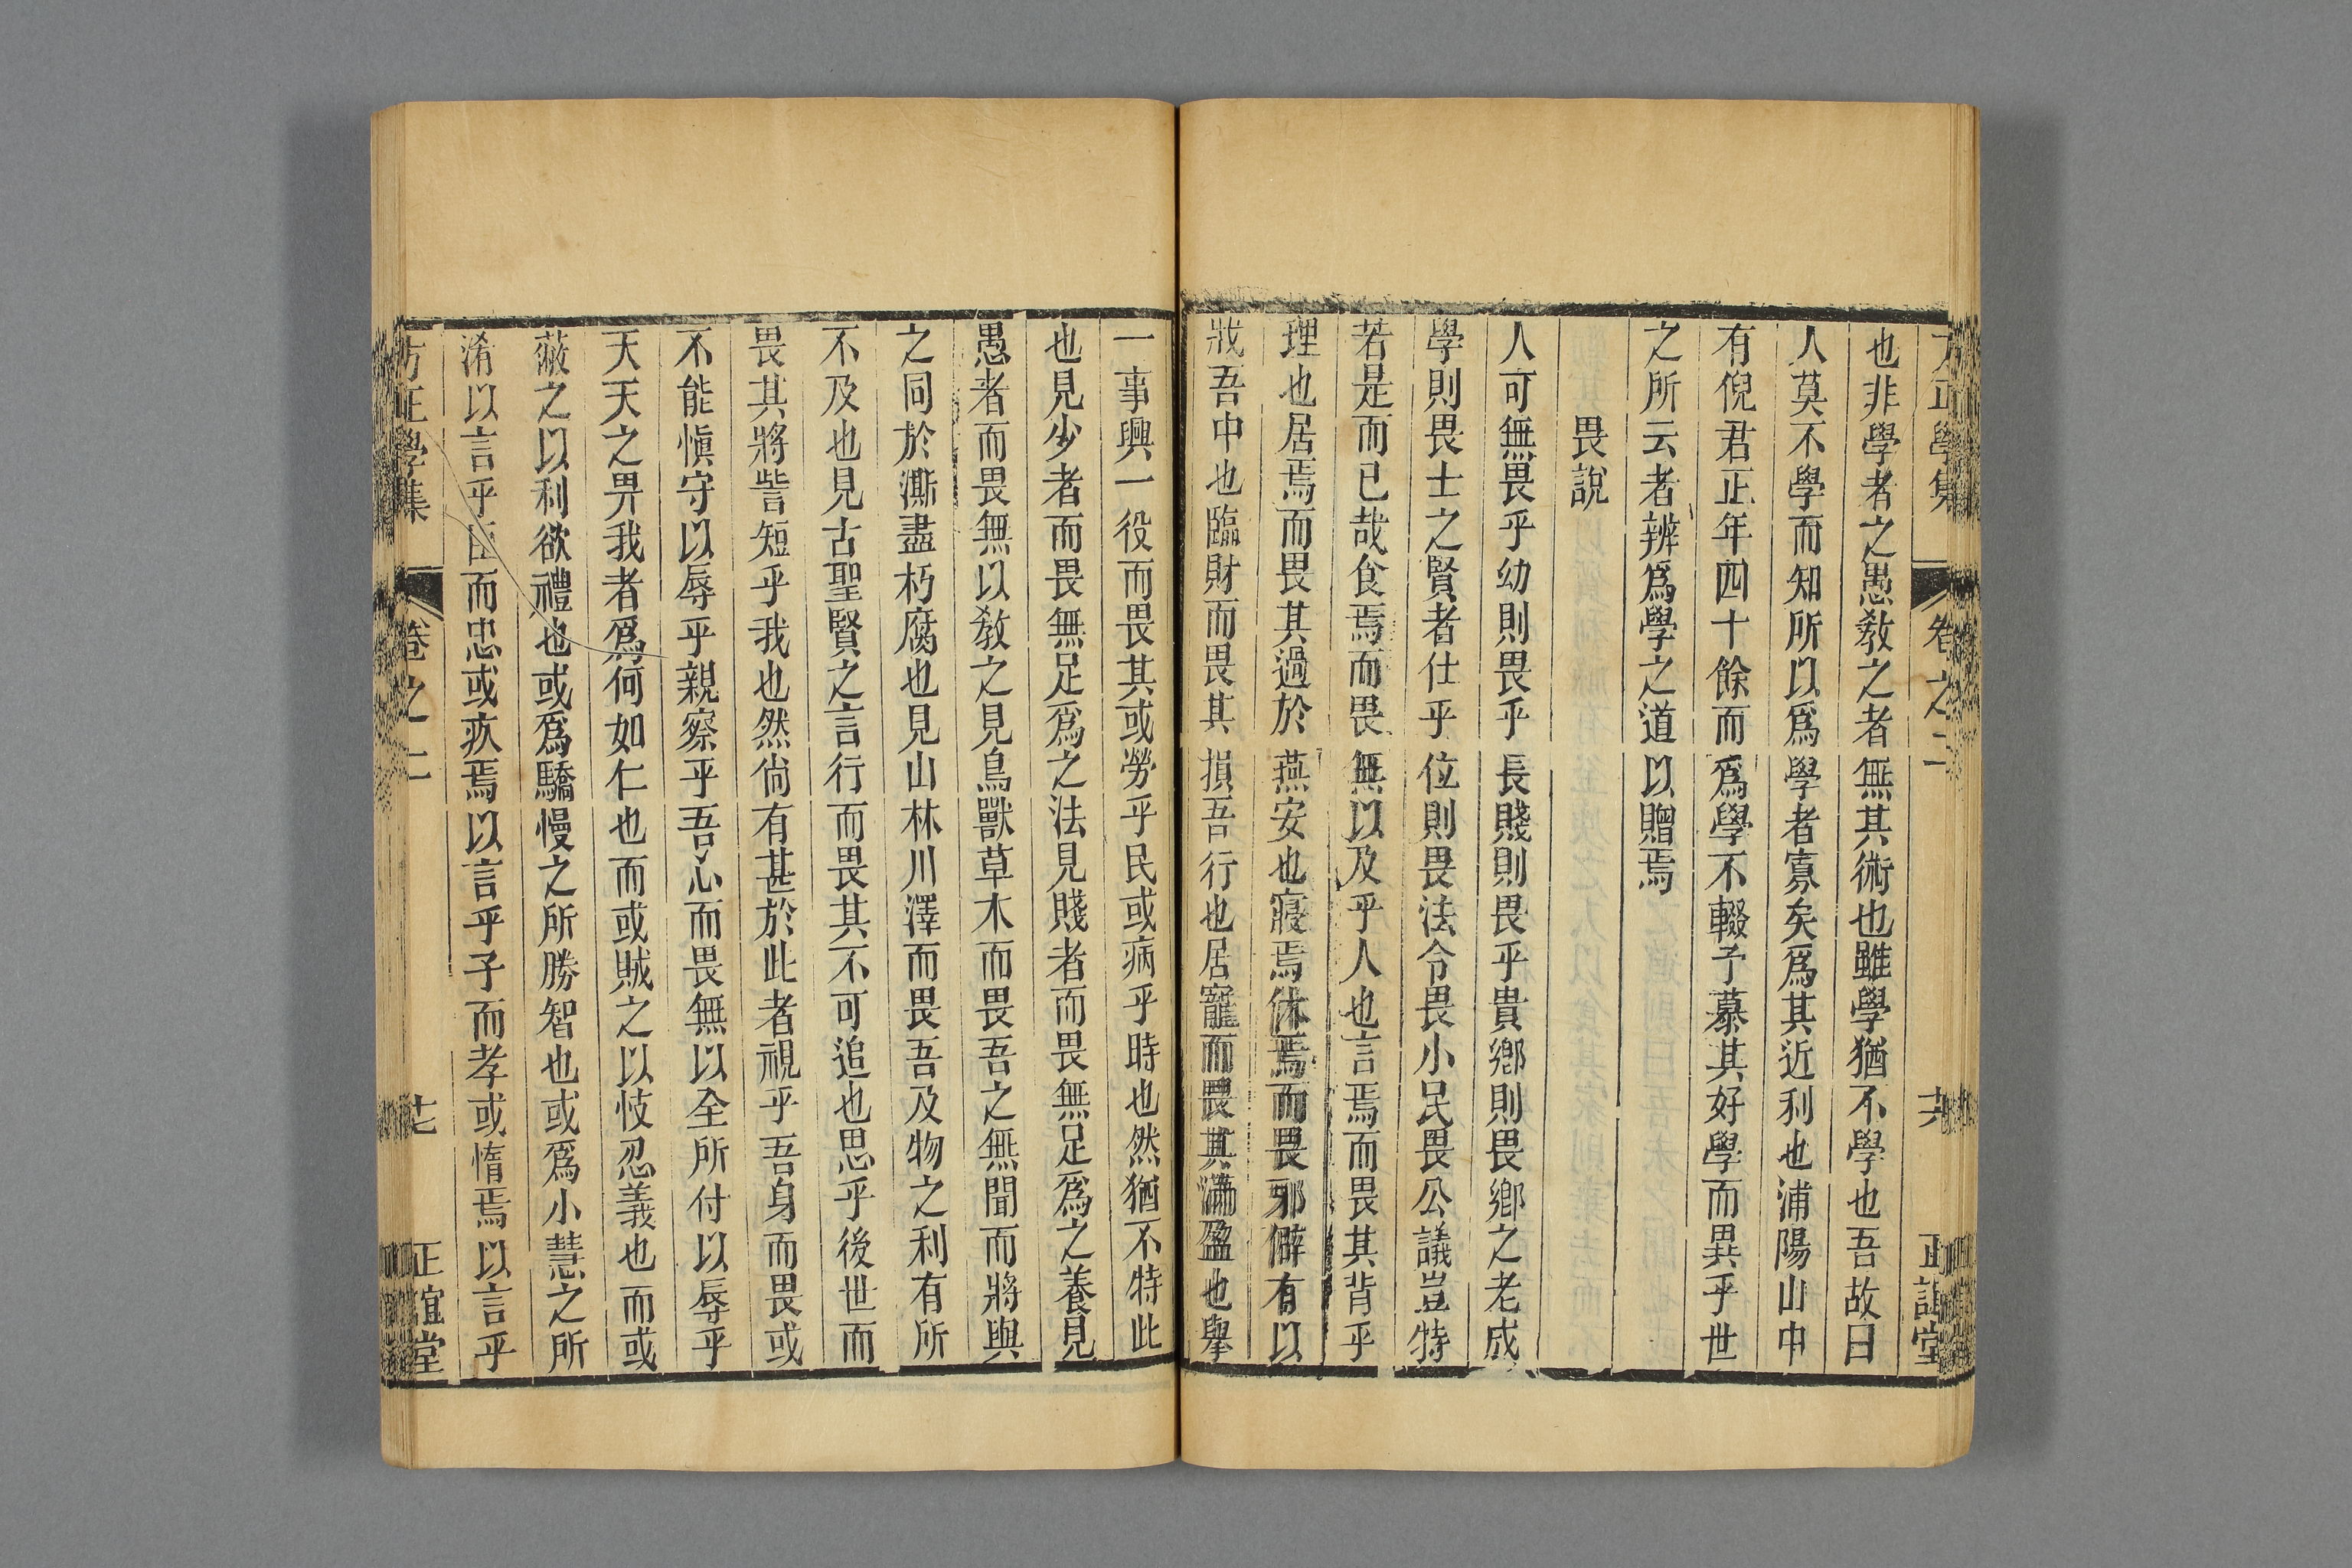 方正學集 卷之二 十六 正誼堂
也非學者之愚教之者無其術也雖學猶不學也吾故曰
人莫不學而知所以爲學者寡矣爲其近利也浦陽山中
有倪君正年四十餘而爲學不輟予慕其好學而異乎世
之所云者辨爲學之道以贈焉
畏說
人可無畏乎幼則畏乎長賤則畏乎貴鄉則畏鄉之老成
學則畏士之賢者仕乎位則畏法令畏小民畏公議豈特
若是而已哉食焉而畏無以及乎人也言焉而畏其背乎
理也居焉而畏其過於燕安也寢焉休焉而畏邪僻有以
戕吾中也臨財而畏其損吾行也居寵而畏其滿盈也擧
一事興一役而畏其或勞乎民或病乎時也然猶不特此
也見少者而畏無足爲之法見賤者而畏無足爲之養見
愚者而畏無以教之見鳥獸草木而畏吾之無聞而將與
之同於澌盡朽腐也見山林川澤而畏吾及物之利有所
不及也見古聖賢之言行而畏其不可追也思乎後世而
畏其將訾短乎我也然尙有甚於此者視乎吾身而畏或
不能愼守以辱乎親察乎吾心而畏無以全所付以辱乎
天天之畀我者爲何如仁也而或賊之以忮忍義也而或
蔽之以利欲禮也或爲驕慢之所勝智也或爲小慧之所
淆以言乎臣而忠或疚焉以言乎子而孝或惰焉以言乎
方正學集 卷之二 十七 正誼堂